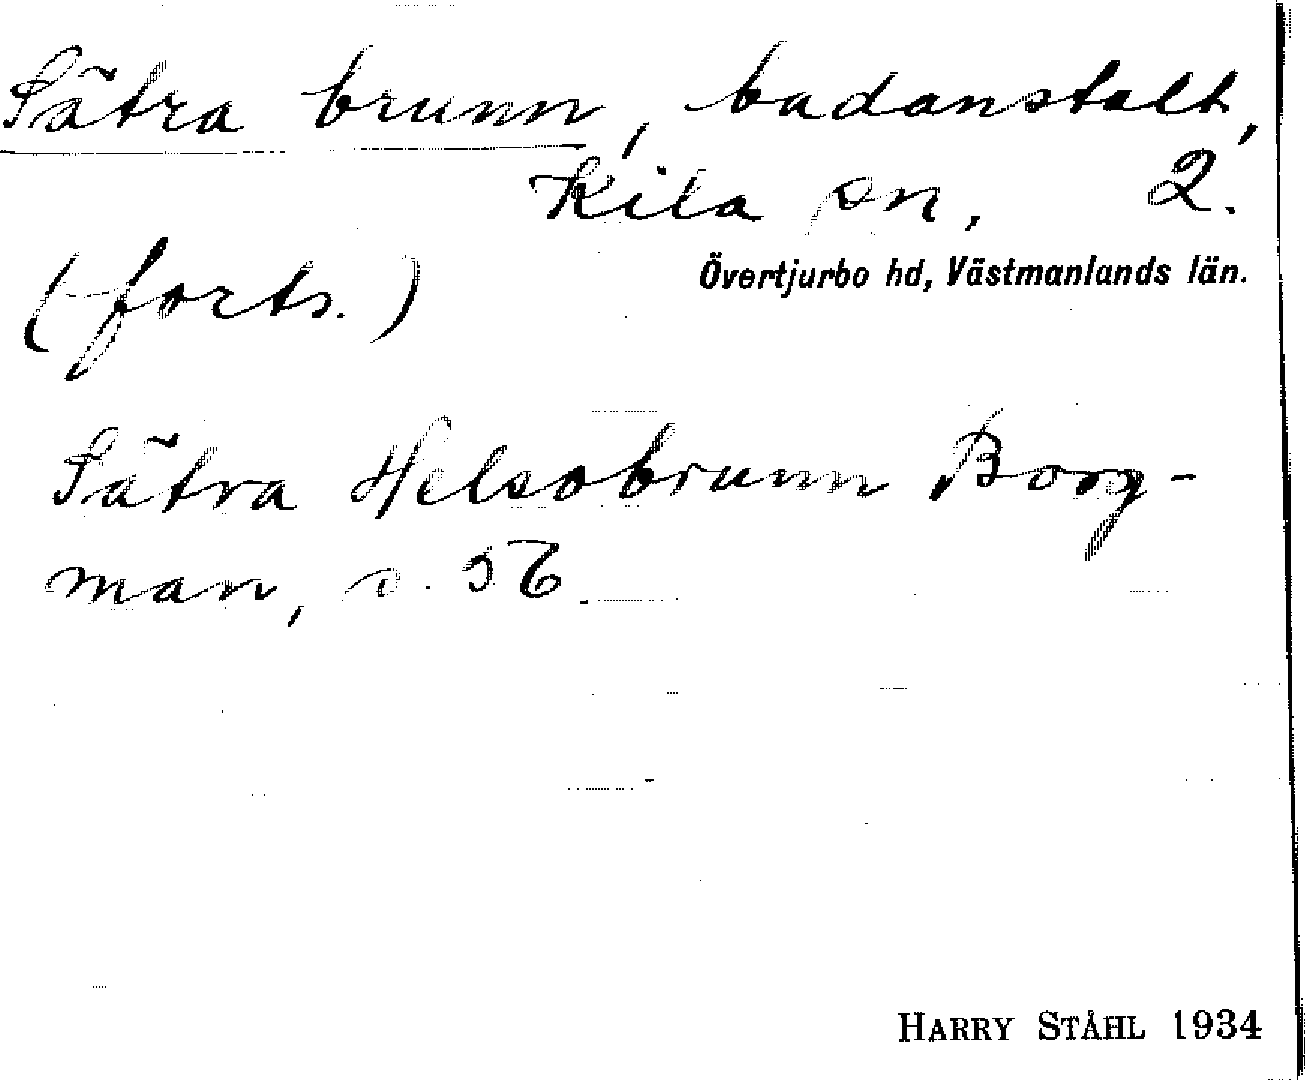 Sätra brunn, badanstalt,
Kila sn, 2.
(forts.)
Övertjurbo hd, Västmanlands län.
Sätra Helsobrunn Borg-
man, s. 56.
HARRY STÅHL 1934